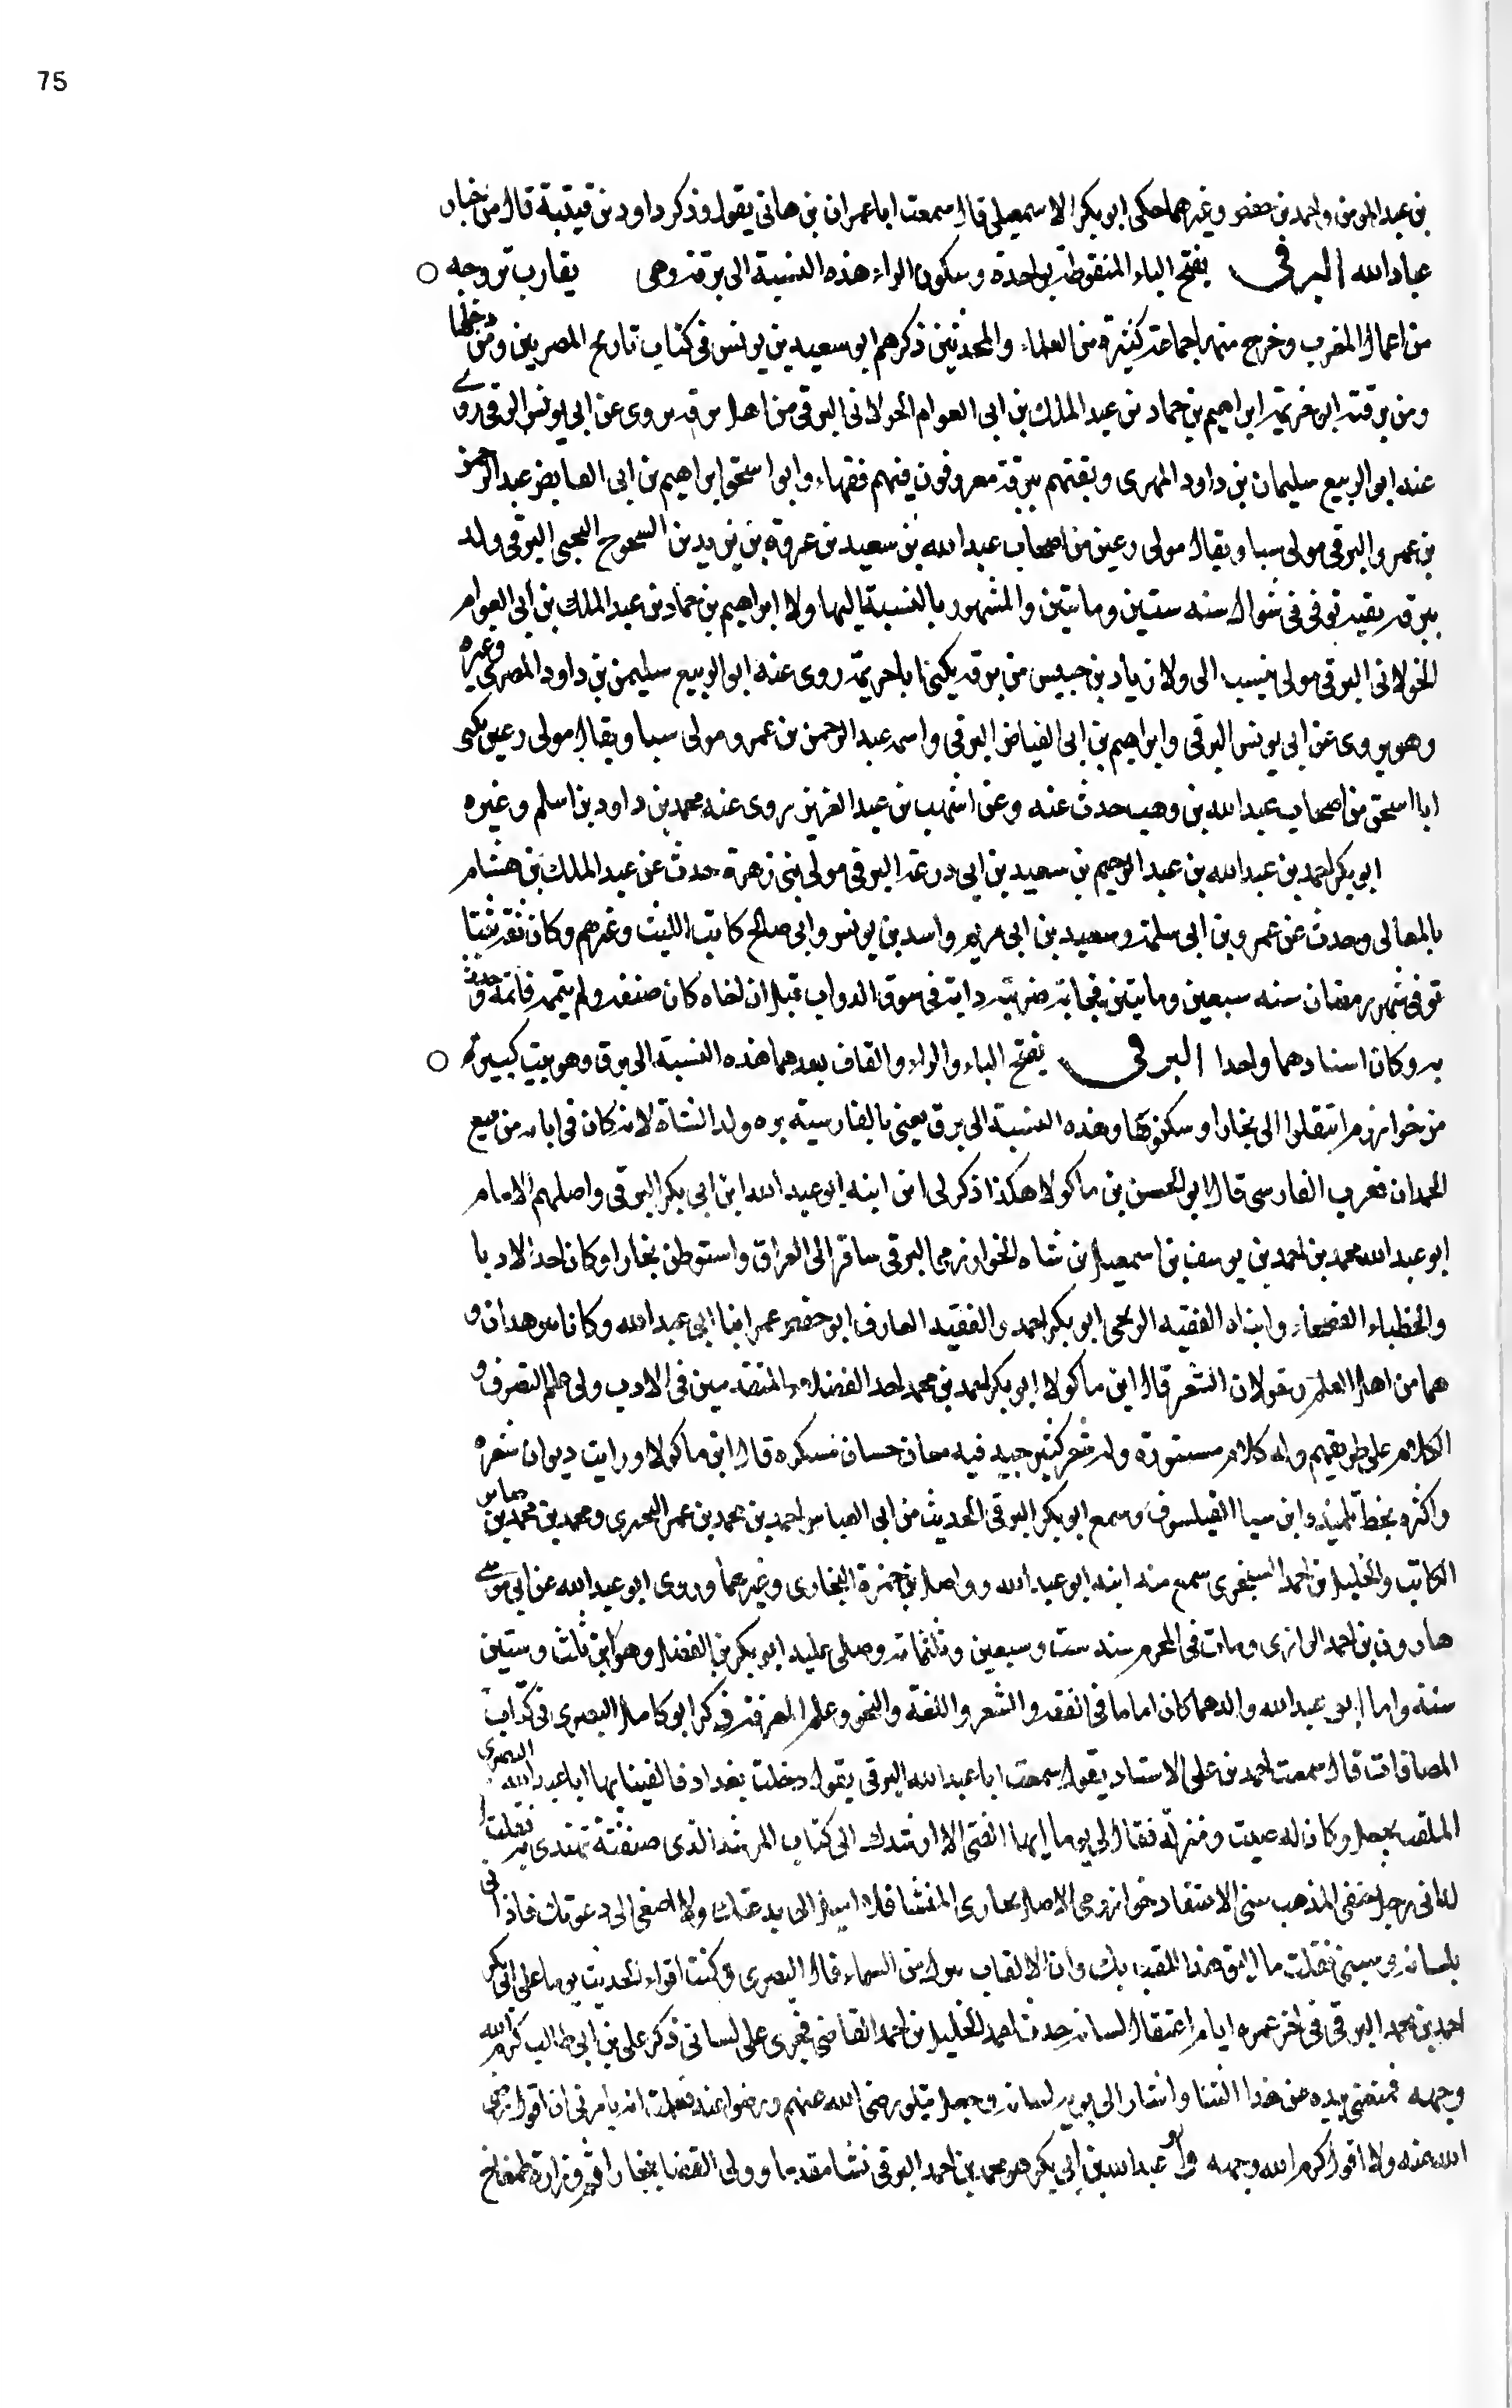 75
بن عبد المومن واحمد بن حفص وغيرهما حكى ابو بكر الاسمعيلى قال سمعت ابا عمران بن هانى يقول وذكر داود بن قيتبة قال من خيار
عباد الله البرقى بفتح الباء المنقوطة بواحدة وسكون الراء هذه النسبة الى برقة وهى يقارب تروجه
من اعمال المغرب وخرج منها جماعة كثيرة من العلماء والمحدثين ذكرهم ابو سعيد بن يونس فى كتاب تاريخ المصريين ومن دخلها
ومن برقة ابو خزيمة ابراهيم بن حماد بن عبد الملك بن ابى العوام الخولانى البرقى من اهل برقة يروى عن ابى يونس البرقى روى
عنه ابو الربيع سليمان بن داود المهرى وبقتهم ببرقة معروفون فيهم فقهاء وابو اسحق ابراهيم بن ابى الفايض عبد الرحمن
بن عمرو البرقى مولى سبا ويقال مولى رعين من اصحاب عبد الله بن سعيد بن عروة بن يزيد بن السحوح التجيبى البرقى ولد
ببرقة توفى فى شوال سنه ستين وماتين والمشهور بالنسبة اليها ولا ابراهيم بن حماد بن عبد الملك بن ابى العوام
الخولانى البرقى مولى ينسب الى ولا زياد بن حبيس من برقة يكنى ابا خزيمة روى عنه ابو الربيع سليمن بن داود المصرى وغيره
وهو يروى عن ابى يونس البرقى وابراهيم بن ابى الفياض البرقى واسمه عبد الرحمن بن عمرو مولى سبا ويقال مولى رعين يكنى
ابا اسحق من اصحاب عبد الله بن وهب حدث عنه وعن اشهب بن عبد العزيز يروى عنه محمد بن داود بن اسلم وغيره
ابو بكر احمد بن عبد الله بن عبد الرحيم بن سعيد بن ابى درعة البرقى مولى بنى زهرة حدث عن عبد الملك بن هشام
بالمغازى وحدث عن عمرو بن ابى سلمة وسعيد بن ابى مريم واسد بن يونس وابى صالح كاتب الليث وغيرهم وكان ثقة ثبتا
توفى شهر رمضان سنه سبعين وماتين فجاة ضربته دابة فى سوق الدواب قبل ان اخاه كان صنفه ولم يتمه فاتمه وحدث
به وكان اسنادهما واحدا البرقى بفتح الباء والراء والقاف بعدهما هذه النسبة الى برق وهو بيت كبير
من خوارزم انتقلوا الى بخارا وسكنوها وهذه النسبة الى برق يعنى بالفارسية بره ولد الشاة لانه كان فى ابائه من يبيع
الحمدان فعرب الفارسى قال ابو الحسن بن ماكولا هكذا ذكر لى ابن ابنه ابو عبد الله ابن ابى بكر البرقى واصلهم الامام
ابو عبد الله محمد بن احمد بن يوسف بن اسمعيل بن شاه الخوارزمى البرقى سافر الى العراق واستوطن بخارا وكان احد الادبا
والخطباء الفصحاء وابناه الفقيه الزكى ابو بكر احمد والفقيه العارف ابو حفص عمر ابنا ابى عبد الله وكانا
هما من اهل العلم ويقولان الشعر قال ابن ماكولا ابو بكر احمد بن محمد احد الفضلاء المتقدمين فى الادب وفى علم التصرف و
الكلام على طريقتهم وله كلام مستورة وله شعر كثير جيد فيه معان حسان مبتكرة قال ابن ماكولا ورايت ديوان شعره
واكثره بخط تلميذه ابن سينا الفيلسوف وسمع ابو بكر البرقى الحديث من ابى العباس احمد بن محمد بن عمر البحيرى ومحمد بن محمد بن
الكاتب والخليل بن احمد السجزى سمع منه ابنه ابو عبد الله وواصل بن حمزة البخارى وغيرهما وروى ابو عبد الله عن ابى موسى
هارون بن احمد الرازى ومات فى المحرم سنه ست وسبعين وثلثماية وصلى عليه ابو بكر بن الفضل وهو ابن ثلث وستين
سنة واما ابو عبد الله والدهما كان اماما فى الفقه والشعر واللغة والنحو وعلم المعرفة ذكر ابو كامل البصرى فى كتاب
المضافات قال سمعت احمد بن على الاستاد يقول سمعت ابا عبد الله البرقى يقول دخلت بغداد فالفينا بها ابا عبد الله البصرى
الملقب بجعل وكان له صيت ومنزلة فقال لى يوما ايها الفتى الا ارشدك الى كتاب المرشد الذى صنفته تهتدى به فقلت
له انى رجل حنفى المذهب سنى الاعتقاد خوارزمى الاصل بخارى المنشا فلا اميل الى بدعتك ولا اصغى الى دعوتك فاذانى
بلسانه وسبنى فقلت ما اليق هذا اللقب بك وان الالقاب تنزل من السماء قال البصرى وكنت اقراء الحديث يوما على ابى بكر
احمد بن محمد البرقى فى اخر عمره ايام اعتقال لسانه حدث احمد الخليل بن احمد القاضى فجرى على لسانى ذكر على بن ابى طالب كرم الله
وجهه فمنعنى بيده عن هذا الثنا واشار الى بيده لسانه وجعل يتلو رضى الله عنهم ورضوا عنه فعلمت انه يامرنى ان اقول رضى
الله عنه ولا اقول كرم الله وجهه وابو عبد الله بن ابى بكر هو محمد بن احمد البرقى نشا مقدما وولى القضا ببخارا ثم وزارة طمغاج